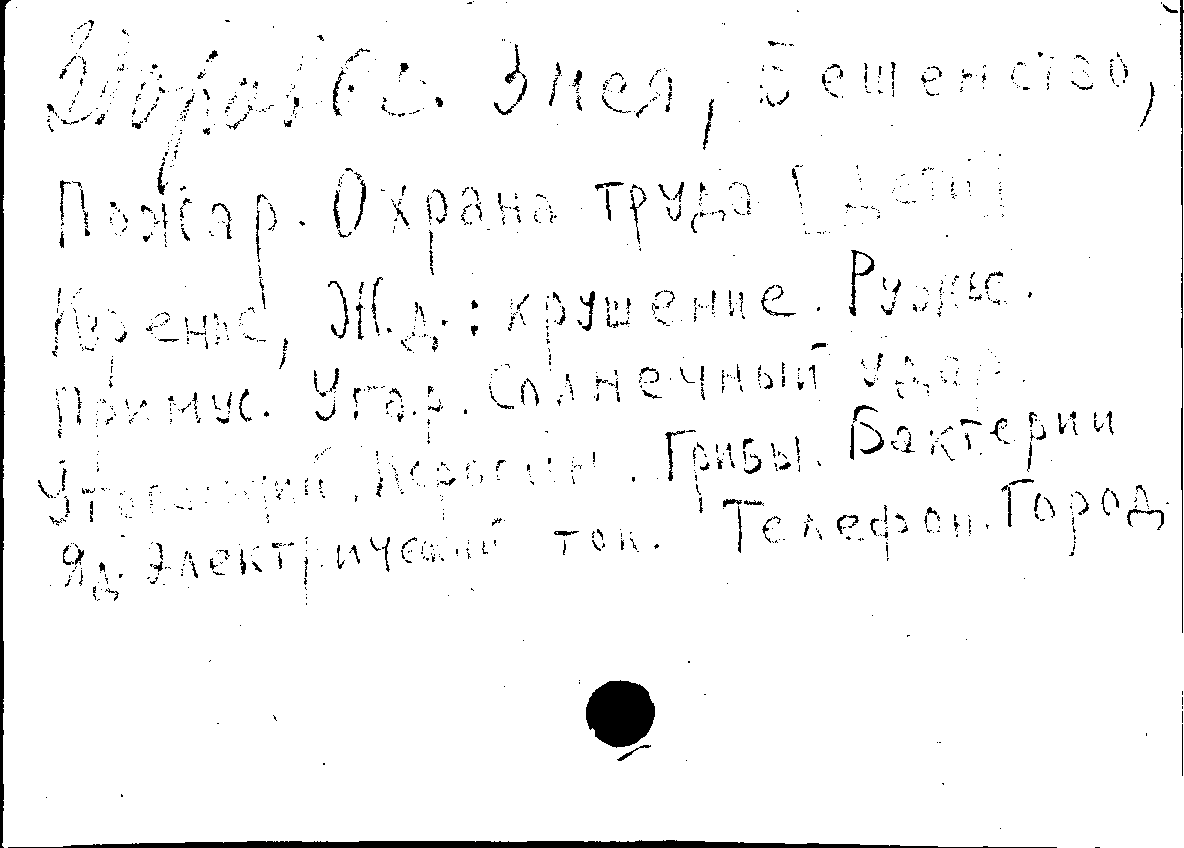 Здраввс. Змея, бешенство,
Пожар. Охрана труда [Дети]
Курение, Ж.д.: крушение. Ружье.
Примус. Угар. Солнечный удар.
Утопающий. Керосин. Грибы. Бактерии
Яд. Электрический ток. Телефон. Город